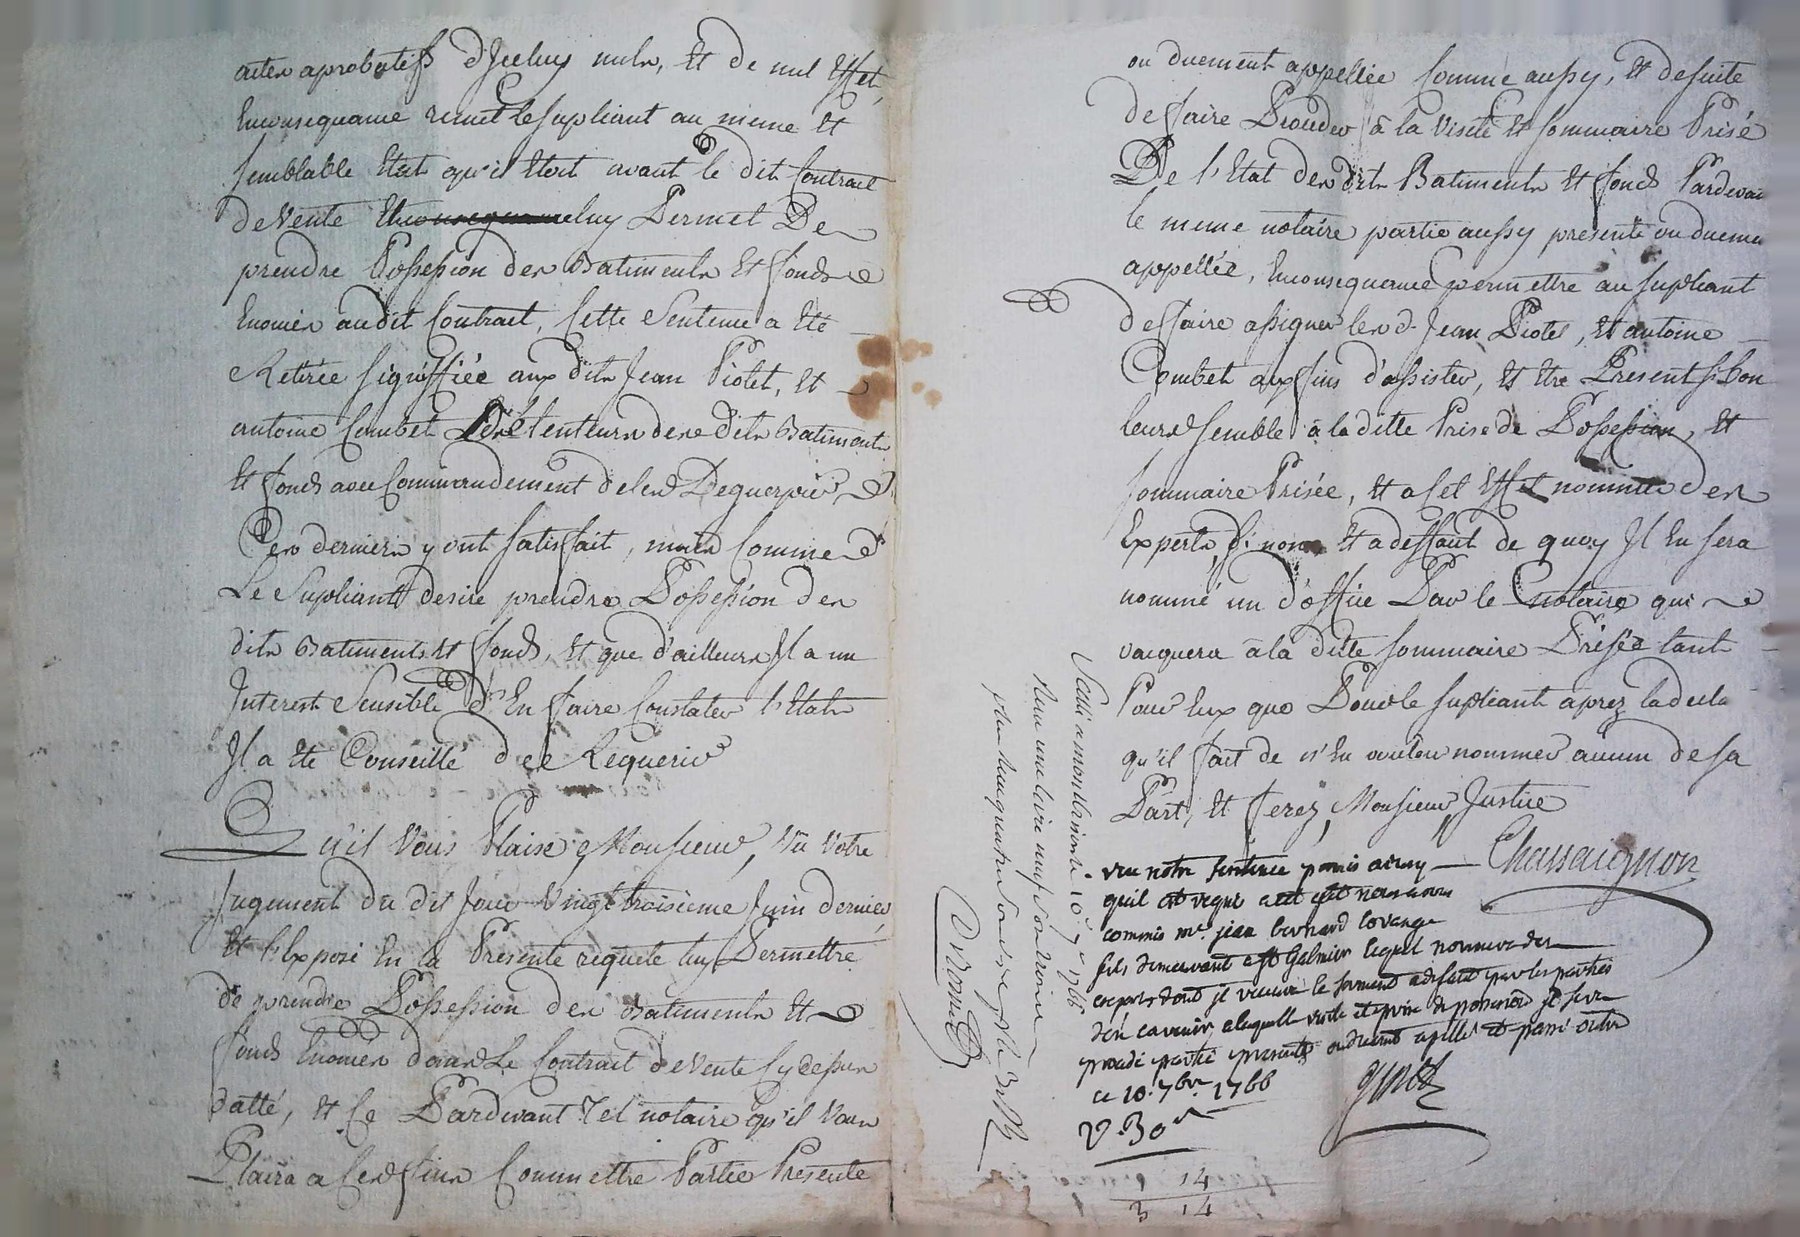 actes aprobatifs d'Iceluy nuls, Et de nul Effet,
Enconsequance remet le supliant au meme Et
semblable Etat qu'il Etoit avant le dit Contract
de Vente luy Permet De
prendre Possession des Batiments Et fonds
Enoncés audit Contract, Cette Sentence a Eté
Retirée signiffiée aux dits Jean Piolet, Et
antoine Combet Detenteurs des dits Batiments
Et fonds avec Commandement de les Deguerpir,
Ces derniers y ont satisfait, mais Comme
Le Supliant desire prendre Possession des
dits Batiments Et fonds, Et que d'ailleurs Il a un
Interest Sensible d'En faire Constater l'Etat
Il a Eté Conseillé de Requerir
Qu'il Vous Plaise Monsieur, Vü Votre
Jugement du dit Jour Vingt troisieme Juin dernier,
Et l'Exposé En la Presente requete luy Permettre
de prendre Possession des Batiments Et
fonds Enoncés dans Le Contract de Vente Cy dessus
datté, Et Ce Pardevant Tel notaire qu'il Vous
Plaira a Ces fins Commettre Partie Presente
ou duement appellée Comme aussy, Et de suite
de faire Proceder à la Visite Et sommaire Prisé
De l'Etat des dits Batiments Et fonds Pardevant
le meme notaire partie aussy presente ou duement
appellée, Enconsequance permettre au supliant
de faire assigner les d. Jean Piolet, Et antoine
Combet aux fins d'assister, Et Etre Present si bon
leurs semble à la ditte Prise de Possession, Et
sommaire Prisée, Et a Cet Effet nommer des
Experts, si non Et a deffaut de quoy Il En sera
nommé un d'office Par le notaire qui
vacquera à la ditte sommaire Prisée tant
Pour Eux que Pour le supliant aprez la decla
qu'il fait de n'En vouloir nommer aucun de sa
Part, Et ferez Monsieur Justice
Chassaignon
veu notre sentence permis ainsy
quil est requis a cet effet nous avons
commis me. jean bernard
fils demeurant a st Galmier lequel nommera des
experts dont je recevra le serment a defaut par les parties
d'en convenir a laquelle visite et prise de possession je sera
procedé partie presente ou duement apellé et passé outre
ce 10. 7bre 1766
V. 30 s
Scellé a montbrison le 10 7re 1766
Reçu une livre neuf sols
1 14
3 14